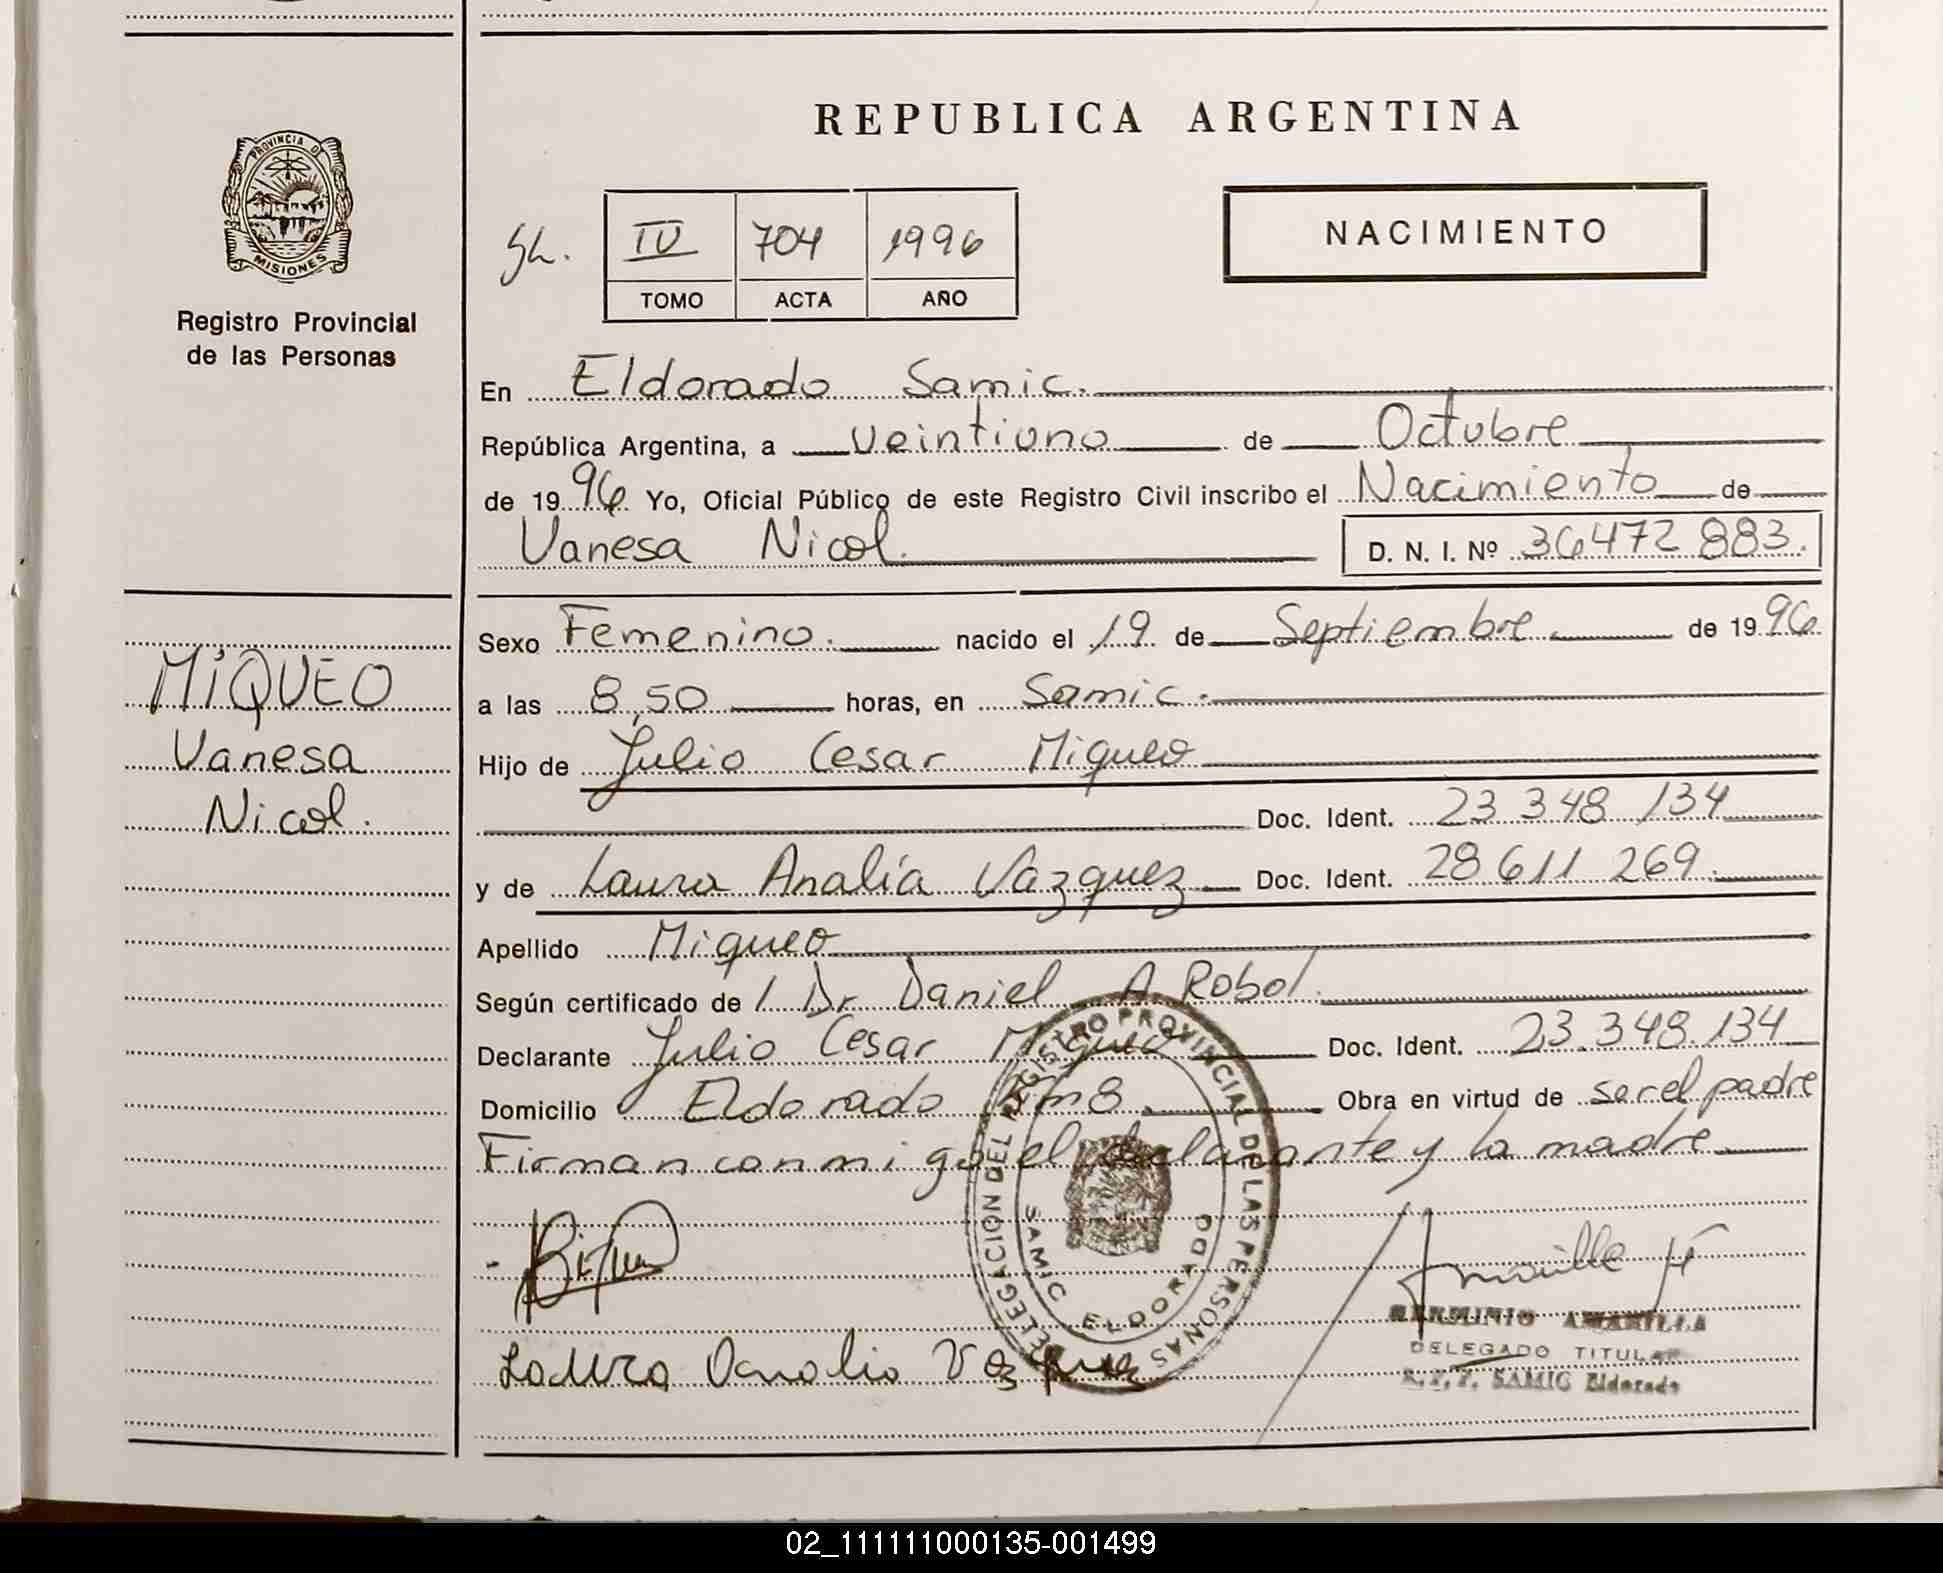 REPUBLICA ARGENTINA
PROVINCIA DE
MISIONES
Registro Provincial
de las Personas
IV 704 1996
TOMO ACTA AÑO
NACIMIENTO
En Eldorado Samic.
República Argentina, a veintiuno de Octubre
de 1996 Yo, Oficial Público de este Registro Civil inscribo el Nacimiento de
Vanesa Nicol. D. N. I. Nº 36472 883.
MIQUEO
Vanesa
Nicol.
Sexo Femenino. nacido el 19 de Septiembre de 1996
a las 8,50 horas, en Samic.
Hijo de Julio Cesar Miqueo
Doc. Ident. 23 348 134
y de Laura Analía Vazquez Doc. Ident. 28 611 269.
Apellido Miqueo
Según certificado de / Dr Daniel A Robol.
Declarante Julio Cesar Miqueo Doc. Ident. 23.348.134
Domicilio Eldorado Km8. Obra en virtud de ser el padre
Firman conmigo el declarante y la madre.
DELEGACION DEL REGISTRO PROVINCIAL DE LAS PERSONAS
SAMIC ELDORADO
Amarilla H
HERMINIO AMARILLA
DELEGADO TITULAR
SAMIC Eldorado
Laura Analia Vazquez
02_111111000135-001499